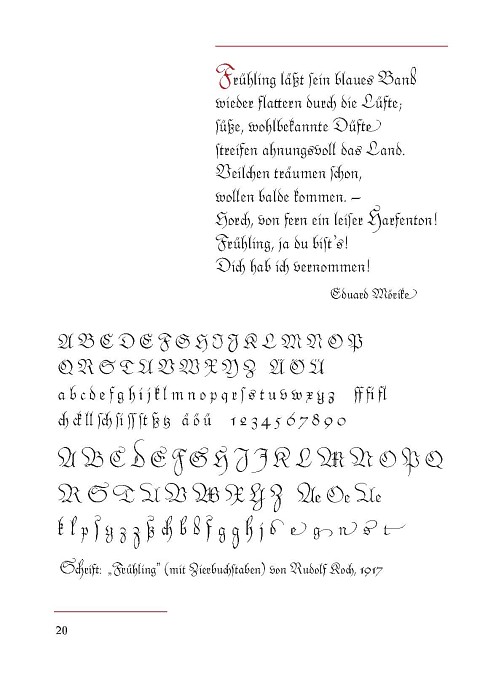 Frühling läßt sein blaues Band
wieder flattern durch die Lüfte;
süße, wohlbekannte Düfte
streifen ahnungsvoll das Land.
Veilchen träumen schon,
wollen balde kommen. –
Horch, von fern ein leiser Harfenton!
Frühling, ja du bist's!
Dich hab ich vernommen!
Eduard Mörike
A B C D E F G H I J K L M N O P
Q R S T U V W X Y Z Ä Ö Ü
a b c d e f g h i j k l m n o p q r ſ s t u v w x y z ff fi fl
ch ck ll ſch ſi ſſ ſt ß tz ä ö ü 1 2 3 4 5 6 7 8 9 0
A B C D E F G H I J K L M N O P Q
R S T U V W X Y Z Ae Oe Ue
Schrift: „Frühling" (mit Zierbuchstaben) von Rudolf Koch, 1917
20